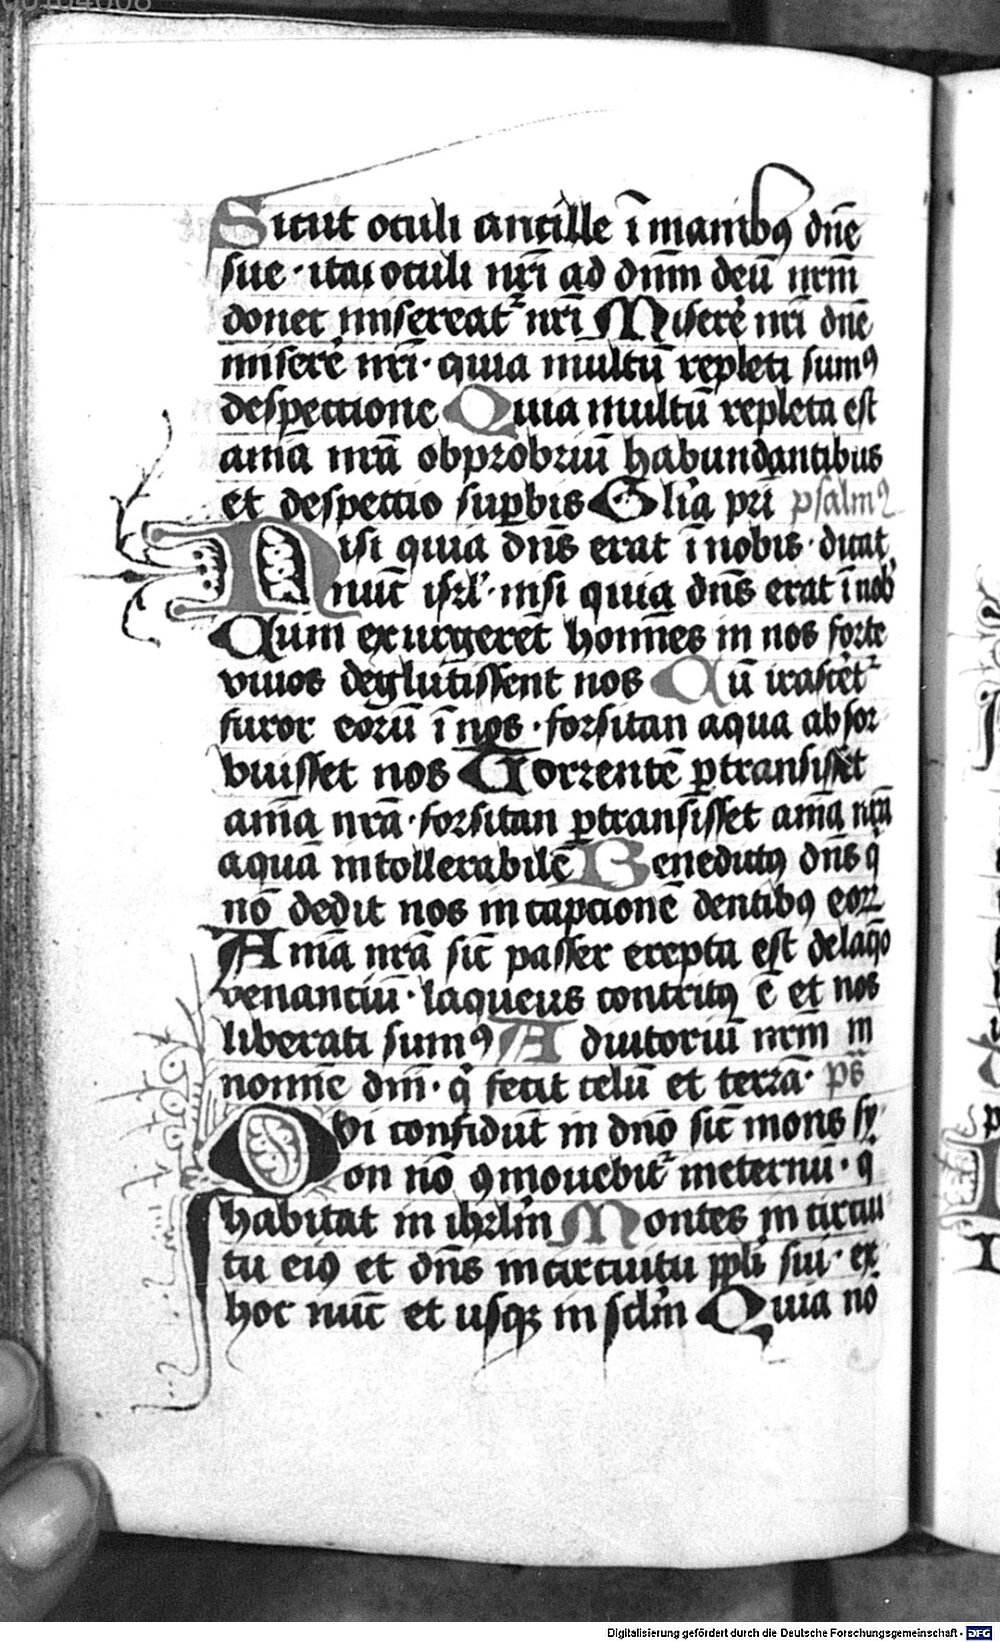 Sicut oculi ancille ī manibꝰ dn̄e
sue · ita oculi nr̄i ad dnm̄ deū nrm̄
donec misereatᷣ nr̄i Miserē nr̄i dn̄e
miserē nr̄i · quia multū repleti sumꝰ
despectione Quia multū repleta est
aīa nr̄a obprobriū habundantibus
et despectio suꝑbis Glīa pr̄i psalmꝰ
Nisi quia dn̄s erat ī nobis · dicat
nūc isrl' · nisi quia dn̄s erat ī nob'
Qum exurgerēt homīes in nos forte
viuos deglutissent nos Qū irascet᷑
furor eorū ī nos · forsitan aqua absor
buisset nos Torrentē ꝑtransisset
aīam nr̄a · forsitan ꝑtransisset aīa nr̄a
aquā intollerabilē Benedictꝰ dn̄s q̇
nō dedit nos in captionē dentibꝰ eoꝝ
Aīa nr̄a sic̄ passer erepta est de laq̄o
venanciū · laqueus contritꝰ ē et nos
liberati sumꝰ Adiutoriū nrm̄ in
nomīe dnī · q̇ fecit celū et terrā · ps̄
Qvi confidūt in dn̄o sic̄ mons sy
on nō ꝯmouebit᷑ ineternū · q̇
habitat in ihrlm̄ Montes in circui
tu eiꝰ et dn̄s in circuitu ppl̄i sui · ex
hoc nūc et usqꝫ in sclm̄ Quia nō
Digitalisierung gefördert durch die Deutsche Forschungsgemeinschaft - DFG